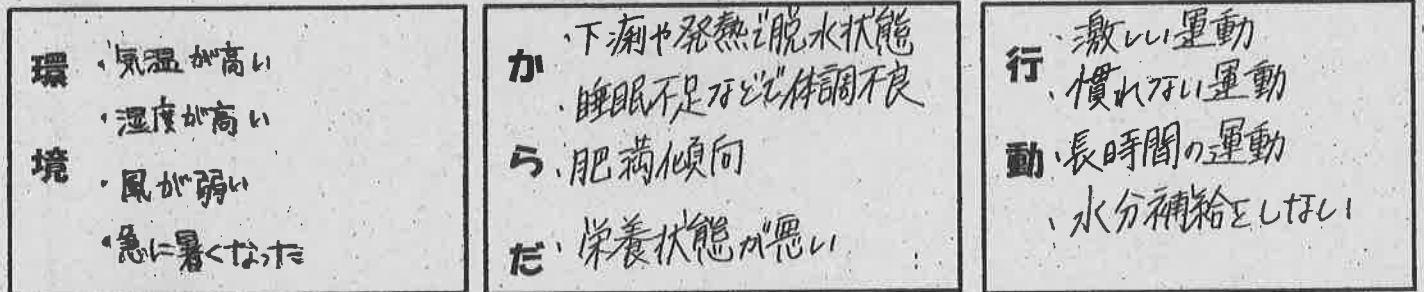 環境
・気温が高い
・湿度が高い
・風が弱い
・急に暑くなった
からだ
・下痢や発熱で脱水状態
・睡眠不足などで体調不良
・肥満傾向
・栄養状態が悪い
行動
・激しい運動
・慣れない運動
・長時間の運動
・水分補給をしない